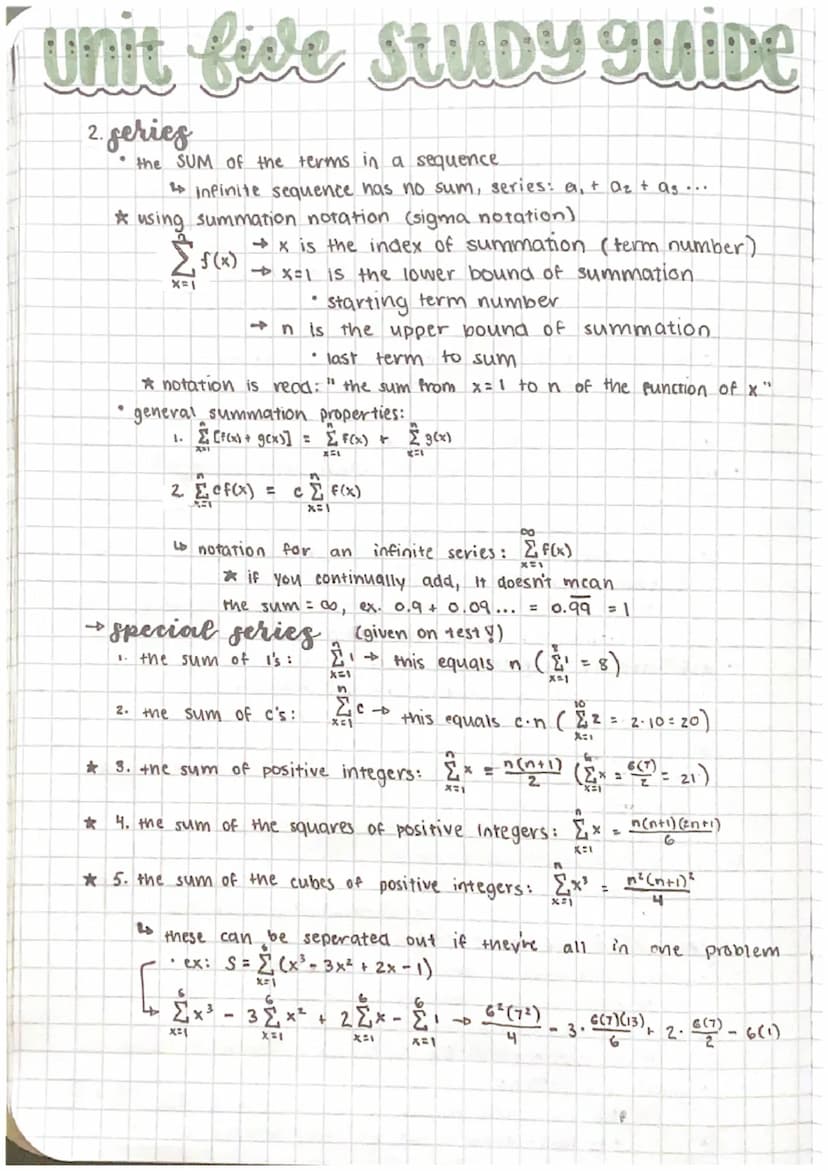 unit five study guide
2. series
• the SUM of the terms in a sequence
↳ infinite sequence has no sum, series: a₁ + a₂ + a₃ ...
★ using summation notation (sigma notation)
n
∑ f(x) → x is the index of summation (term number)
x=1 → x=1 is the lower bound of summation
• starting term number
→ n is the upper bound of summation
• last term to sum
★ notation is read: "the sum from x=1 to n of the function of x"
• general summation properties:
1. ∑ₓ₌₁ⁿ [f(x) + g(x)] = ∑ₓ₌₁ⁿ f(x) + ∑ₓ₌₁ⁿ g(x)
2. ∑ₓ₌₁ⁿ cf(x) = c ∑ₓ₌₁ⁿ f(x)
↳ notation for an infinite series: ∑ₓ₌₁^∞ f(x)
★ if you continually add, it doesn't mean
the sum = ∞, ex. 0.9 + 0.09 ... = 0.9̅9̅ = 1
→ special series (given on test!)
1. the sum of 1's: ∑ₓ₌₁ⁿ 1 → this equals n (∑ₓ₌₁⁸ 1 = 8)
2. the sum of c's: ∑ₓ₌₁ⁿ c → this equals c·n (∑ₓ₌₁¹⁰ 2 = 2·10 = 20)
★ 3. the sum of positive integers: ∑ₓ₌₁ⁿ x = n(n+1)/2 (∑ₓ₌₁⁶ x = 6(7)/2 = 21)
★ 4. the sum of the squares of positive integers: ∑ₓ₌₁ⁿ x = n(n+1)(2n+1)/6
★ 5. the sum of the cubes of positive integers: ∑ₓ₌₁ⁿ x³ = n²(n+1)²/4
↳ these can be seperated out if they're all in one problem
• ex: S = ∑ₓ₌₁⁶ (x³ - 3x² + 2x - 1)
↳ ∑ₓ₌₁⁶ x³ - 3 ∑ₓ₌₁⁶ x² + 2 ∑ₓ₌₁⁶ x - ∑ₓ₌₁⁶ 1 → 6²(7²)/4 - 3 · 6(7)(13)/6 + 2 · 6(7)/2 - 6(1)